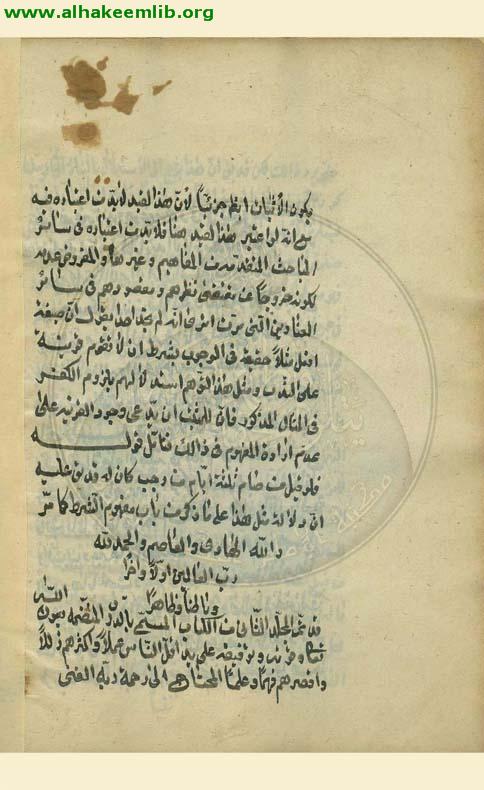 www.alhakeemlib.org
يكون الاثبات ايضا جزئيا لان هذا القيد لا بد من اعتباره فيه
مع انه لو اعتبر هذا القيد هنا فلا بد من اعتباره فى سائر
المباحث المتقدمة من المفاهيم و غيرها و المفروض عدمه
لكونه خروجا عن مقتضى نظرهم و مقصودهم فى سائر
العناوين التى مرت الا ترى انه لم يقل احد بقول ان صيغة
افعل مثلا حقيقة فى الوجوب بشرط ان لا تقوم قرينة
على الندب و مثل هذا التوهم
فى المثال المذكور فان للمثبت ان يدعى وجود القرينة على
عدم ارادة المفهوم فى ذالك فتامل قوله
فلو قيل من صام ثلثة ايام من رجب كان له قد بق عليه
ان دلالة مثل هذا على ما ذكر من باب مفهوم الشرط كما مر
و الله الهادى و العاصم و الحمد لله
رب العالمين اولا و اخرا
و باطنا و ظاهرا
قد تم المجلد الثانى من الكتاب المسمى بالدرر بعون
على يد اقل الناس عملا و اكثرهم زللا
و اقصرهم فهما و علما المحتاج الى رحمة ربه الغنى